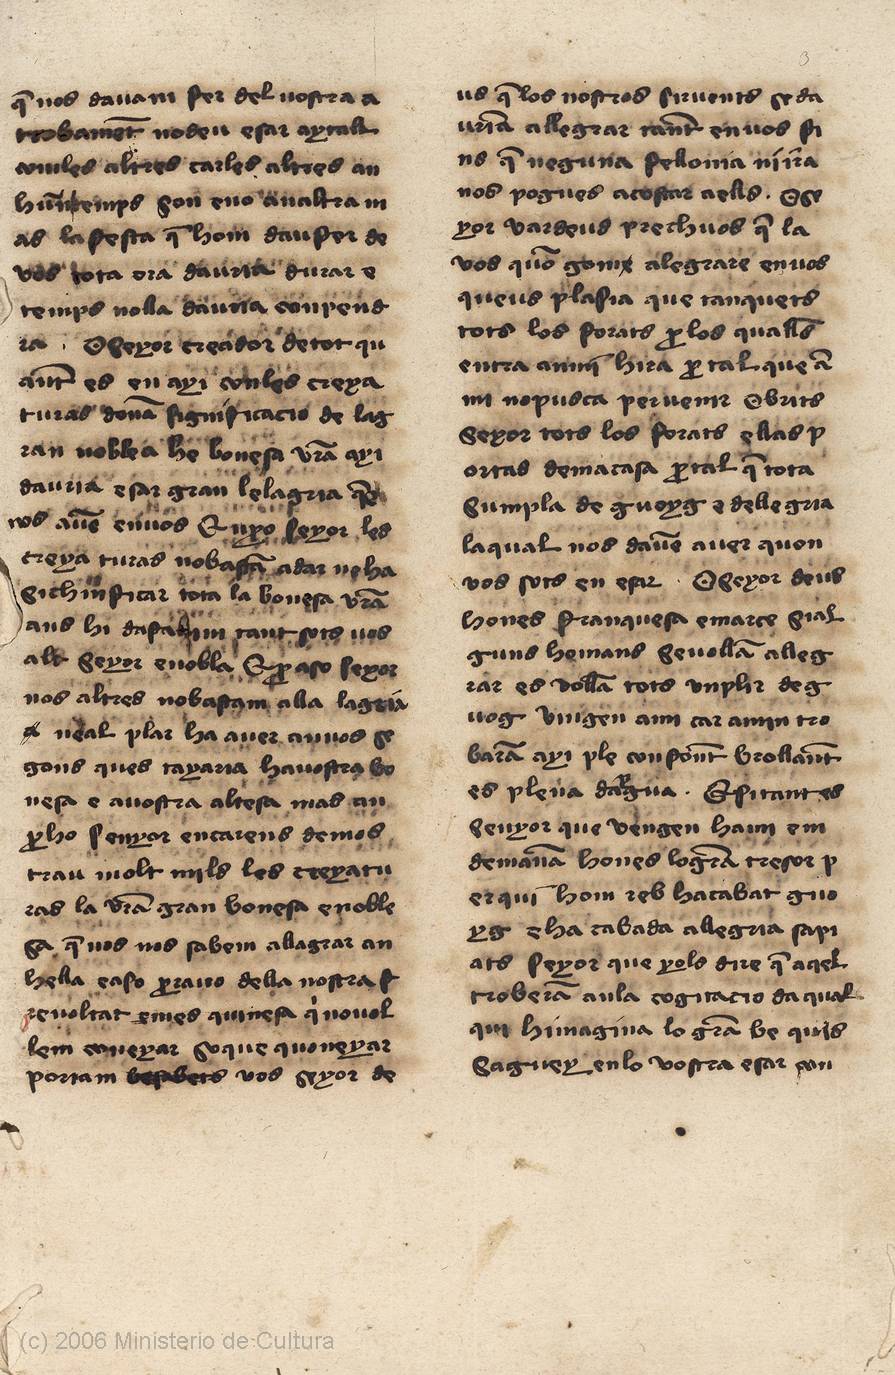 3
q̄ nos dauam fer del nostra a
trobament̄ nodeu esar aytall
comles altres carles altres an
hun̄ temps son eno analtra m
as la festa q̄ hom dau fer de
vos tota ora dauria durar e
temps nolla dauria conpend
ra . O Seyor creador de tot qu
ant̄ es en axi conles creya
turas donā significacio de lag
ran noblea he bonesa vrā axi
dauria esar gran lelagria q̄
nos auē enuos E uyo seyor les
creya turas nobastā adar noha
sichinficar tota la bonesa vrā
ans hi defallim tant sots uos
alt Seyor enobla E ꝑ aso seyor
nos altres nobastam alla lagria
neal plar ha auer anuos se
gons ques tayaria hauostra bo
nesa e auostra altesa mas an
ꝑho senyor encarens demos
trau molt mils les creyatu
ras la vrā gran bonesa enoble
sa q̄ nos nos sabem allagrar an
hella easo ꝑ rauo della nostra f
reuoltat emes quinesa q̇ nouol
lem coneyar so que quoneyar
portam vos seyor de
us q̄ los nostros siruents seda
uriā allegrar tant̄ enuos fi
ns q̄ neguna fellonia ni irā
nos pogues acostar aells . O se
yor vardeus prechuos q̄ la
vos quō gom alegrare enuos
queus plasia que tanquets
tots los forats ꝑ los qualls̄
entra ammi hira ꝑ tal que ā
mi nopusca peruenir Obrits
Seyor tots los forats ellas p
ortas demacasa ꝑ tal q̄ tota
sumpla de guoyg e dellegria
laqual nos dauē auer quon
vos sots en esar . O Seyor deus
hones franquesa emarce sial
guns homans seuollā alleg
rar es vollā tots vnplir deg
uog vingen ami car amin tro
barā axi ple confont̄ brollant̄
es plena daygua . E si tant es
senyor que vengen hami em
demanā hones lo grā tresor p
er qui hom reb hacabat guo
yg e ha cabada allegria sapi
ats seyor que yols dire q̄ aqel
troberā anla cogitacio da qual
qui himagina lo grā be quis
saguey enlo vostra esar con
(c) 2006 Ministerio de Cultura